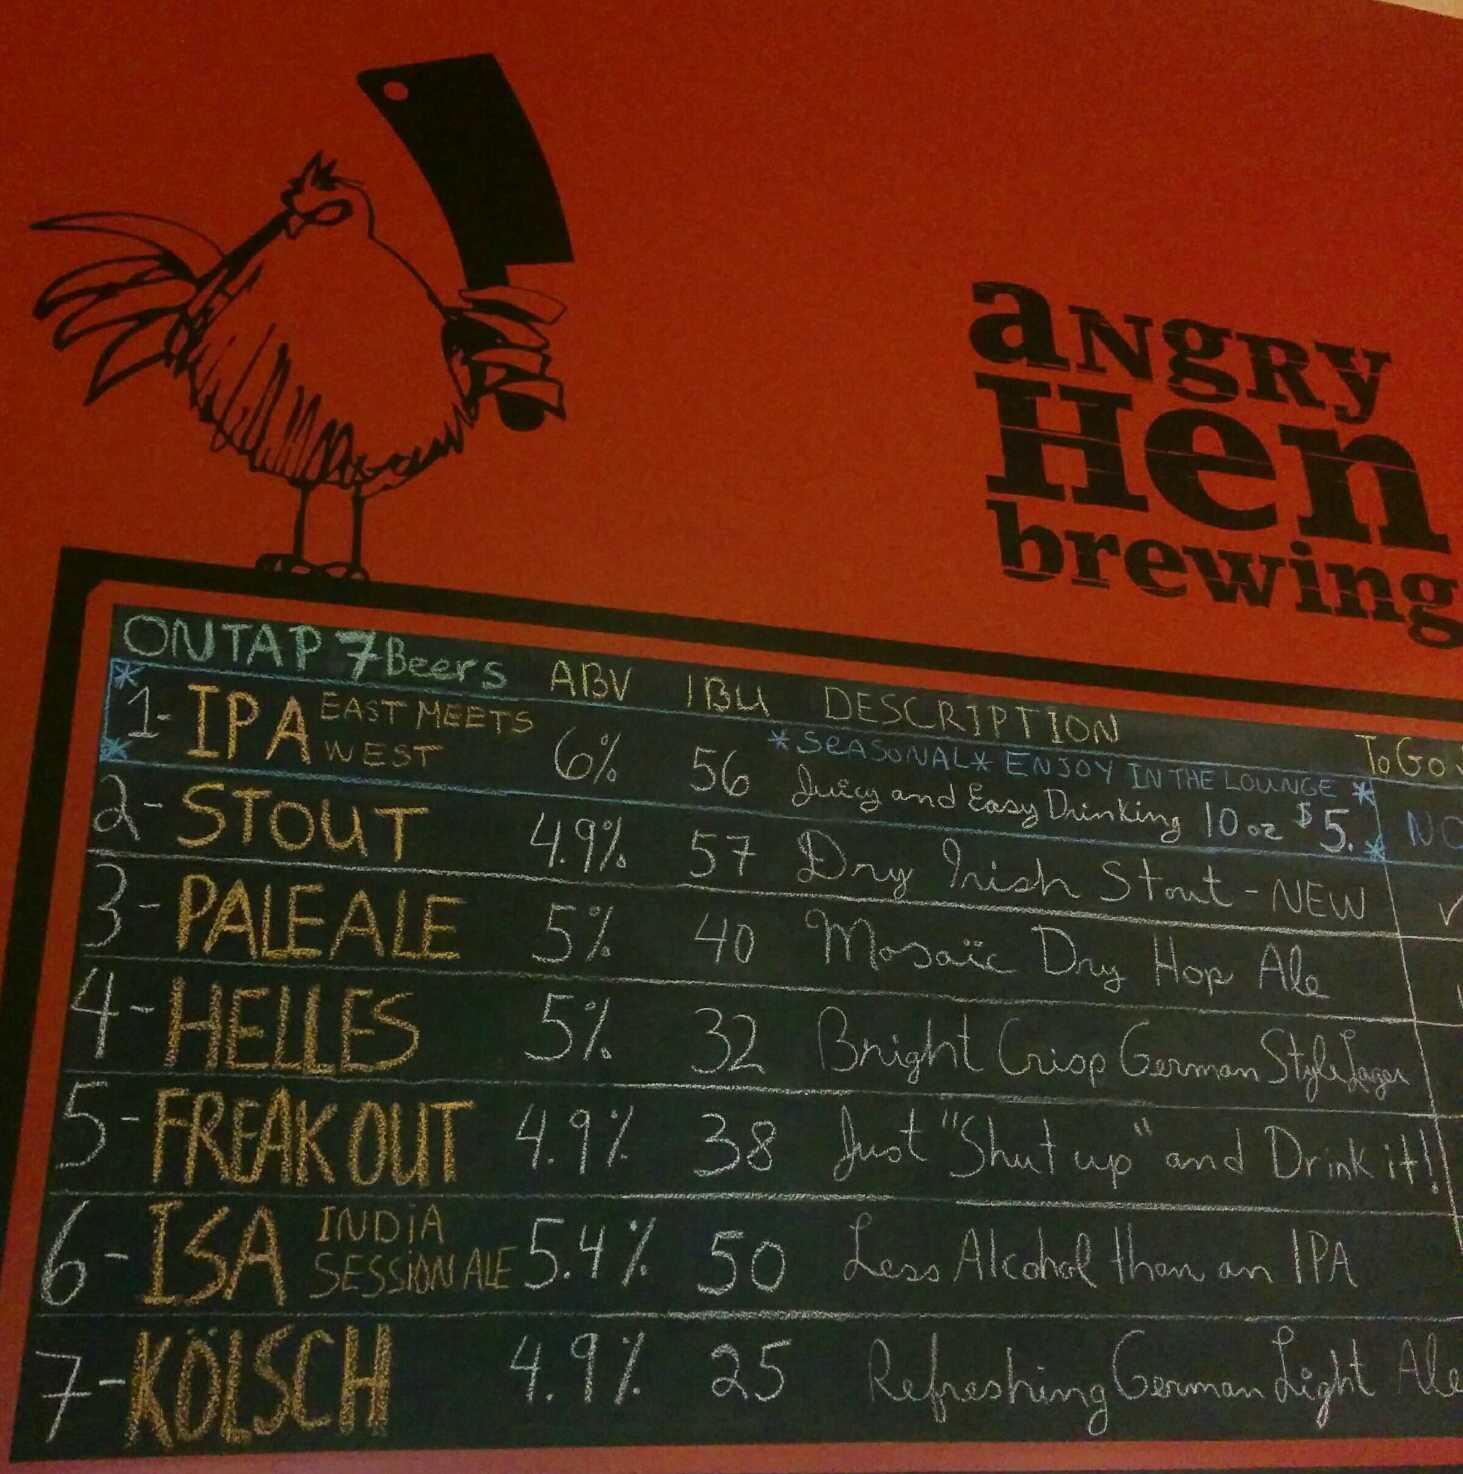 aNgRy
Hen
brewing
ONTAP 7 Beers ABV IBU DESCRIPTION To Go
*SEASONAL* ENJOY IN THE LOUNGE *
1- IPA EAST MEETS WEST 6% 56 Juicy and Easy Drinking 10 oz $5. *
2- STOUT 4.9% 57 Dry Irish Stout - NEW
3- PALE ALE 5% 40 Mosaïc Dry Hop Ale
4- HELLES 5% 32 Bright Crisp German Style Lager
5- FREAK OUT 4.9% 38 Just "Shut up" and Drink it!!
6- ISA INDiA SESSiON ALE 5.4% 50 Less Alcohol than an IPA
7- KÖLSCH 4.9% 25 Refreshing German Light Ale